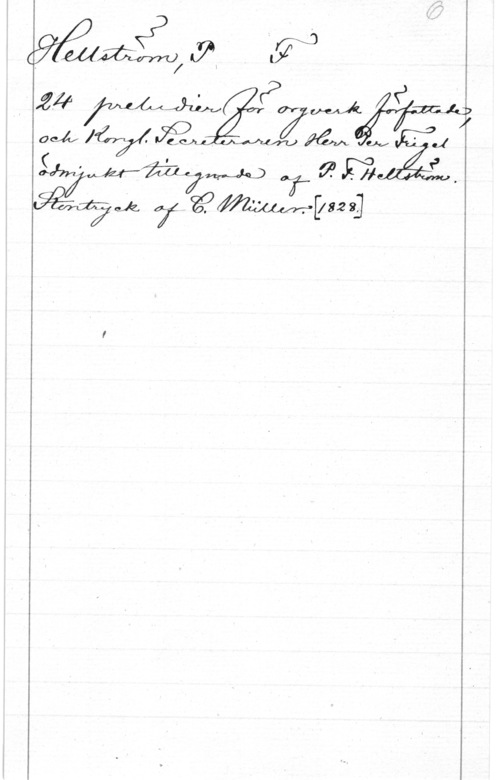 6
Hellström, P F
24 preludier för orgverk författade,
och Kongl. Secreteraren Herr Per Frigel
ödmjukt tillegnade af P. F. Hellström.
Stentryck af C. Müller. [1828.]